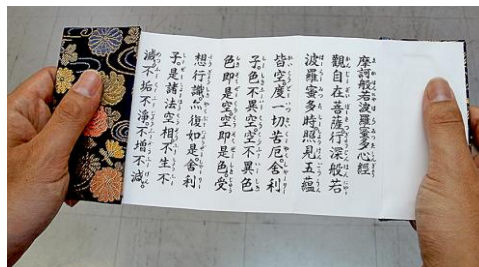 摩訶般若波羅蜜多心經
觀自在菩薩行深般若
波羅蜜多時照見五蘊
皆空度一切苦厄舍利
子。色不異空空不異色
色即是空空即是色。受
想行識亦復如是。舍利
子。是諸法空相不生不
滅不垢不淨。不增不減。